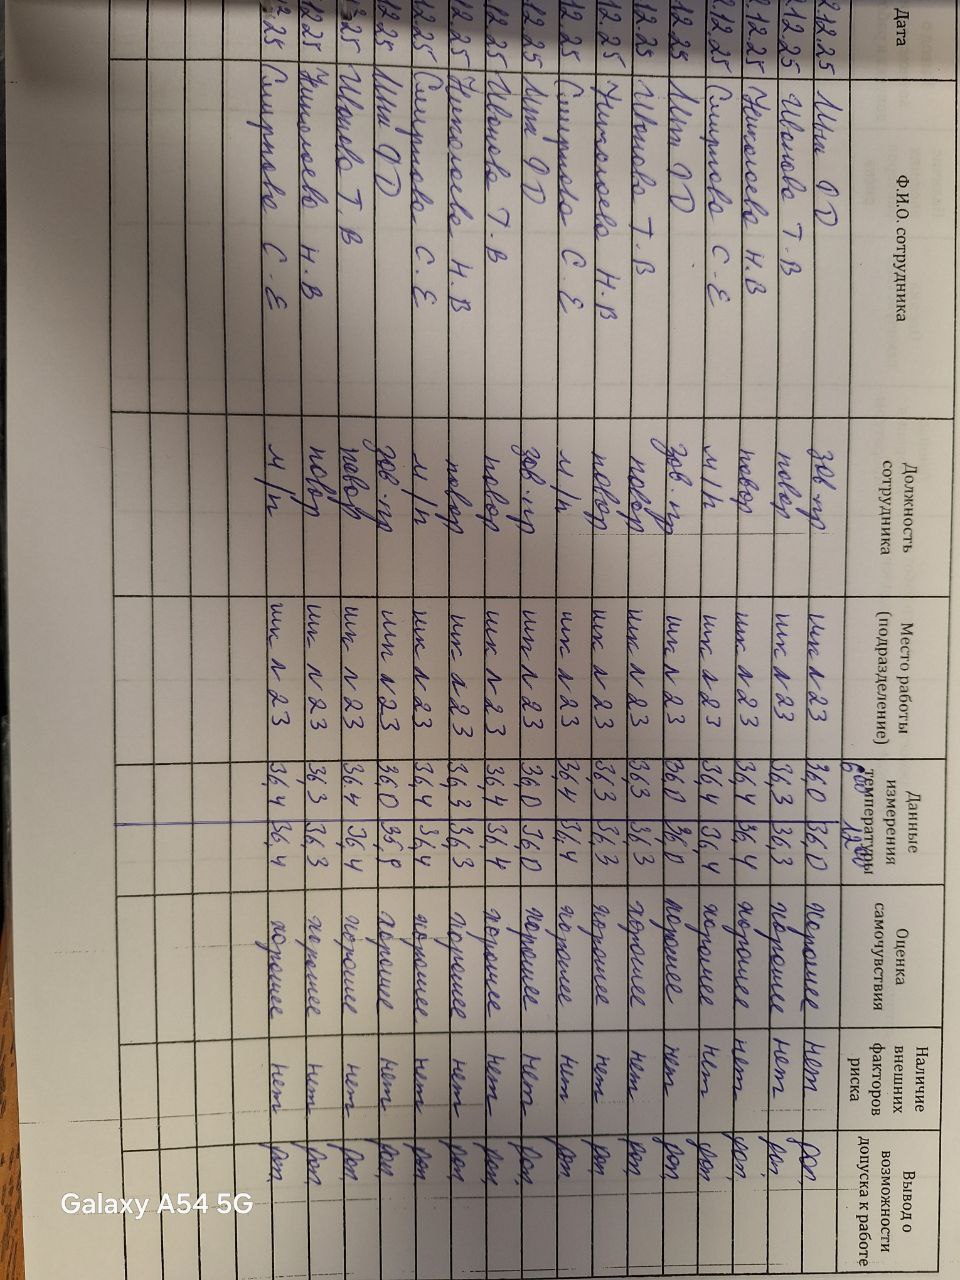 Дата Ф.И.О. сотрудника Должность сотрудника Место работы (подразделение) Данные измерения температуры 6 00 12 00 Оценка самочувствия Наличие внешних факторов риска Вывод о возможности допуска к работе
2.12.25 О Д зав. пр шк л 23 36,0 36,0 хорошее нет доп,
2.12.25 Иванова Т. В повар шк л 23 36,3 36,3 хорошее нет доп,
2.12.25 Николаева Н. В повар шк л 23 36,4 36,4 хорошее нет доп,
2.12.25 Смирнова С. Е м/п шк л 23 36,4 36,4 хорошее нет доп
12.25 О Д зав. пр шк л 23 36,0 36,0 хорошее нет доп,
12.25 Иванова Т. В повар шк л 23 36,3 36,3 хорошее нет доп,
12.25 Николаева Н. В повар шк л 23 36,3 36,3 хорошее нет доп,
12.25 Смирнова С. Е м/п шк л 23 36,4 36,4 хорошее нет доп
12.25 О Д зав. пр шк л 23 36,0 36,0 хорошее нет доп,
12.25 Иванова Т. В повар шк л 23 36,4 36,4 хорошее нет доп,
12.25 Николаева Н. В повар шк л 23 36,3 36,3 хорошее нет доп,
12.25 Смирнова С. Е м/п шк л 23 36,4 36,4 хорошее нет доп,
12.25 О Д зав. пр шк л 23 36,0 35,9 хорошее нет доп,
12.25 Иванова Т. В повар шк л 23 36.4 36,4 хорошее нет доп,
12.25 Николаева Н. В повар шк л 23 36,3 36,3 хорошее нет доп,
12.25 Смирнова С. Е м/п шк л 23 36,4 36,4 хорошее нет доп,
Galaxy A54 5G